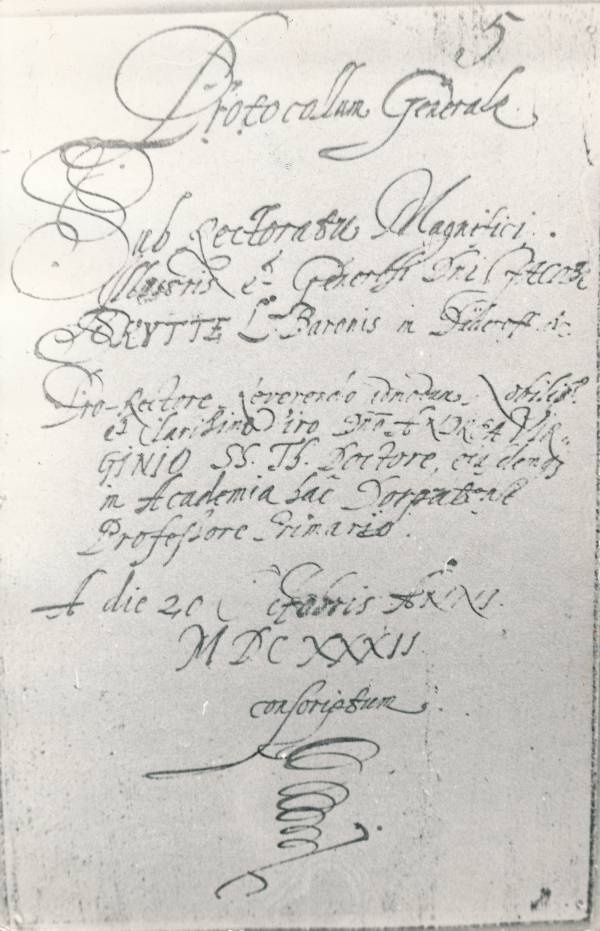 5
Protocollum Generale
Sub Rectoratu Magnifici
Illustris et Generossi Dni Dni JACOBI
SKYTTE L. Baronis in Duderoff etc
Pro-Rectore, Reverendo admodum, Nobiliss.
et Clarissimo Viro Dno ANDREA VIR-
GINIO SS. Th. Doctore, eiusdemqz
in Academia hac Dorpatense
Professore Primario.
A die 20 Octobris ANNI.
MDCXXXII
conscriptum.